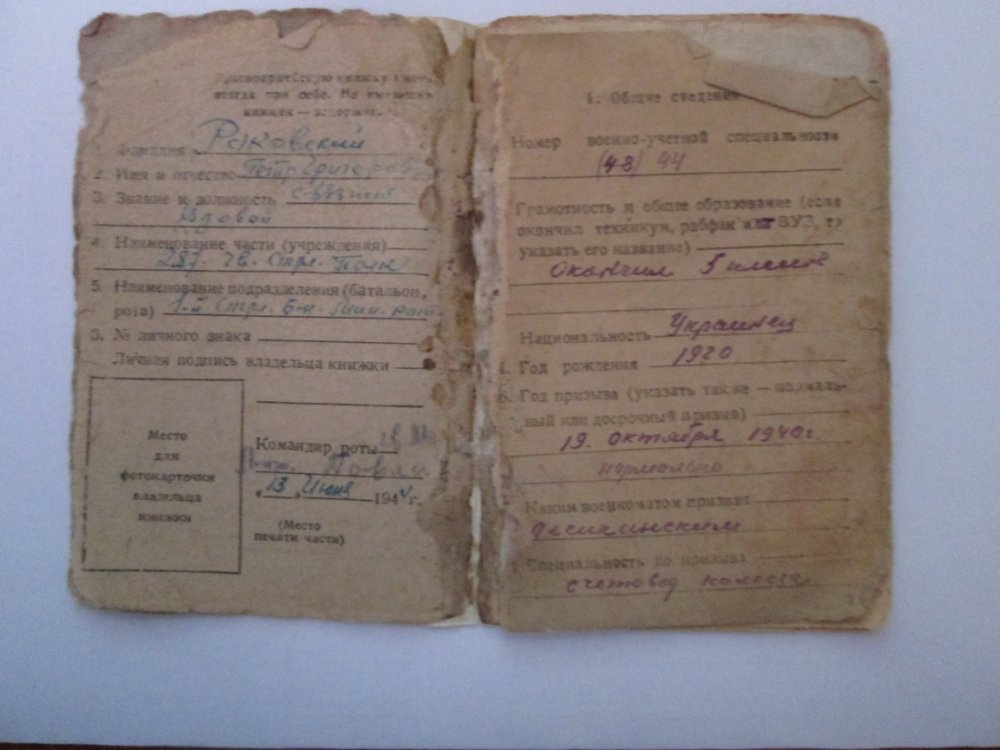 Красноармейскую книжку иметь
всегда при себе. Не имеющих
книжек — задержив.
Фамилия Раковский
2. Имя и отчество Петр
3. Звание и должность связист
Рядовой
4. Наименование части (учреждения)
287. гв. Стрл. Полк
5. Наименование подразделения (батальон,
рота) 1-й Стрл. б-н. Мин. рота
5. № личного знака
Личная подпись владельца книжки
Место
для
фотокарточки
владельца
книжки
Командир роты гв.
Павлы
"13" Июня 1944 г.
(Место
печати части)
1. Общие сведения
Номер военно-учетной специальности
(48) 44
Грамотность и общее образование (если
окончил техникум, рабфак или ВУЗ, то
указать его название)
Окончил 5 классов
Национальность Украинец
Год рождения 1920
6. Год призыва (указать также — нормаль-
ный или досрочный призыв)
19. октября 1940 г.
нормально
Каким военкоматом призван
Песчанским
Специальность до призыва
счетовод колхоза